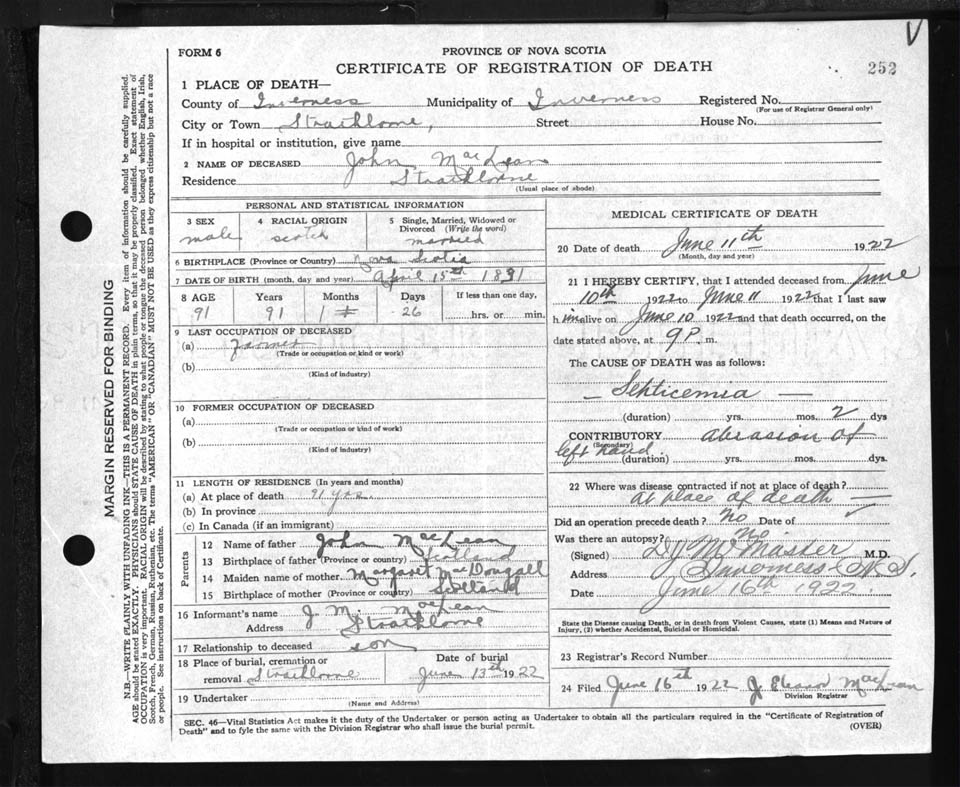 V
FORM 6
PROVINCE OF NOVA SCOTIA
CERTIFICATE OF REGISTRATION OF DEATH
252
1 PLACE OF DEATH—
County of Inverness Municipality of Inverness Registered No.
(For use of Registrar General only)
City or Town Strathlorne, Street House No.
If in hospital or institution, give name
2 NAME OF DECEASED John MacLean
Residence Strathlorne
(Usual place of abode)
PERSONAL AND STATISTICAL INFORMATION
3 SEX male
4 RACIAL ORIGIN scotch
5 Single, Married, Widowed or Divorced (Write the word) married
6 BIRTHPLACE (Province or Country) Nova Scotia
7 DATE OF BIRTH (month, day and year) April 15th 1831
8 AGE Years Months Days If less than one day,
91 91 1 26 hrs. or min.
9 LAST OCCUPATION OF DECEASED
(a) Farmer
(Trade or occupation or kind or work)
(b)
(Kind of industry)
10 FORMER OCCUPATION OF DECEASED
(a)
(Trade or occupation or kind of work)
(b)
(Kind of industry)
11 LENGTH OF RESIDENCE (In years and months)
(a) At place of death 91 yrs.
(b) In province
(c) In Canada (if an immigrant)
Parents
12 Name of father John MacLean
13 Birthplace of father (Province or country) Scotland
14 Maiden name of mother Margaret MacDougall
15 Birthplace of mother (Province or country) Scotland
16 Informant's name J. M. MacLean
Address Strathlorne
17 Relationship to deceased son
18 Place of burial, cremation or removal Strathlorne
Date of burial June 13th 1922
19 Undertaker
(Name and Address)
MEDICAL CERTIFICATE OF DEATH
20 Date of death June 11th 1922
(Month, day and year)
21 I HEREBY CERTIFY, that I attended deceased from June
10th 1922 to June 11 1922 that I last saw
him alive on June 10 1922 and that death occurred, on the
date stated above, at 9 P. m.
The CAUSE OF DEATH was as follows:
— Septicemia —
(duration) yrs. mos. 2 dys
CONTRIBUTORY abrasion of
(Secondary)
left hand. (duration) yrs. mos. dys.
22 Where was disease contracted if not at place of death?
at place of death —
Did an operation precede death? No Date of ✓
Was there an autopsy? No
(Signed) McMaster M.D.
Address Inverness N.S.
Date June 16th 1922.
State the Disease causing Death, or in death from Violent Causes, state (1) Means and Nature of
Injury, (2) whether Accidental, Suicidal or Homicidal.
23 Registrar's Record Number
24 Filed June 16th 1922 J. MacLean
Division Registrar
SEC. 46—Vital Statistics Act makes it the duty of the Undertaker or person acting as Undertaker to obtain all the particulars required in the "Certificate of Registration of
Death" and to fyle the same with the Division Registrar who shall issue the burial permit.
(OVER)
MARGIN RESERVED FOR BINDING
N.B.—WRITE PLAINLY WITH UNFADING INK—THIS IS A PERMANENT RECORD. Every item of information should be carefully supplied.
AGE should be stated EXACTLY. PHYSICIANS should STATE CAUSE OF DEATH in plain terms, so that it may be properly classified. Exact statement of
OCCUPATION is very important. RACIAL ORIGIN will be described by stating to what people or tongue the deceased person belonged whether English, Irish,
Scotch, French, German, Russian, Ruthenian, etc. The terms "AMERICAN" OR "CANADIAN" MUST NOT BE USED as they express citizenship but not a race
or people. See instructions on back of Certificate.